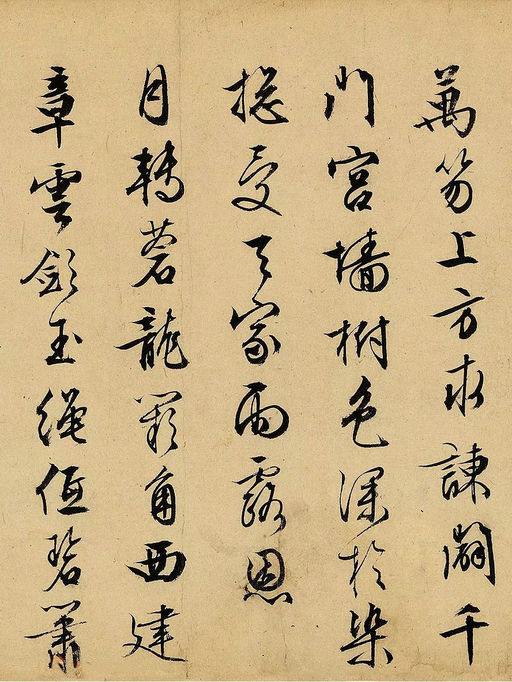 萬笏上方求諫闢千
門宮墻樹色深於染
揔受天家雨露恩
月轉蒼龍闕角西建
章雲斂玉繩低碧簫